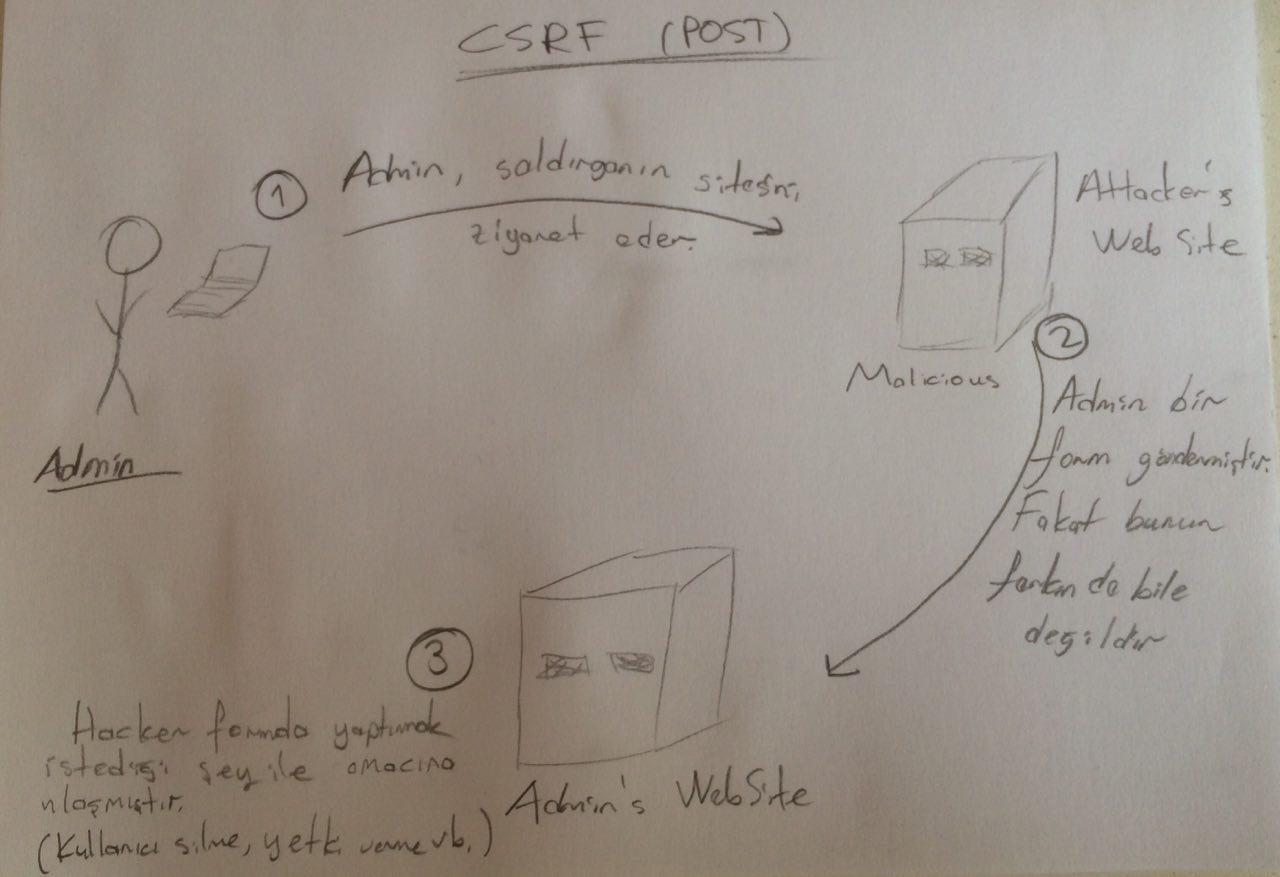 CSRF (POST)
1
Admin, saldırganın sitesini
ziyaret eder.
Attacker's
Web Site
Malicious
Admin
2
Admin bir
form göndermiştir.
Fakat bunun
farkında bile
değildir
3
Hacker formda yaptırmak
istediği şey ile amacına
ulaşmıştır.
(Kullanıcı silme, yetki verme vb.)
Admin's WebSite